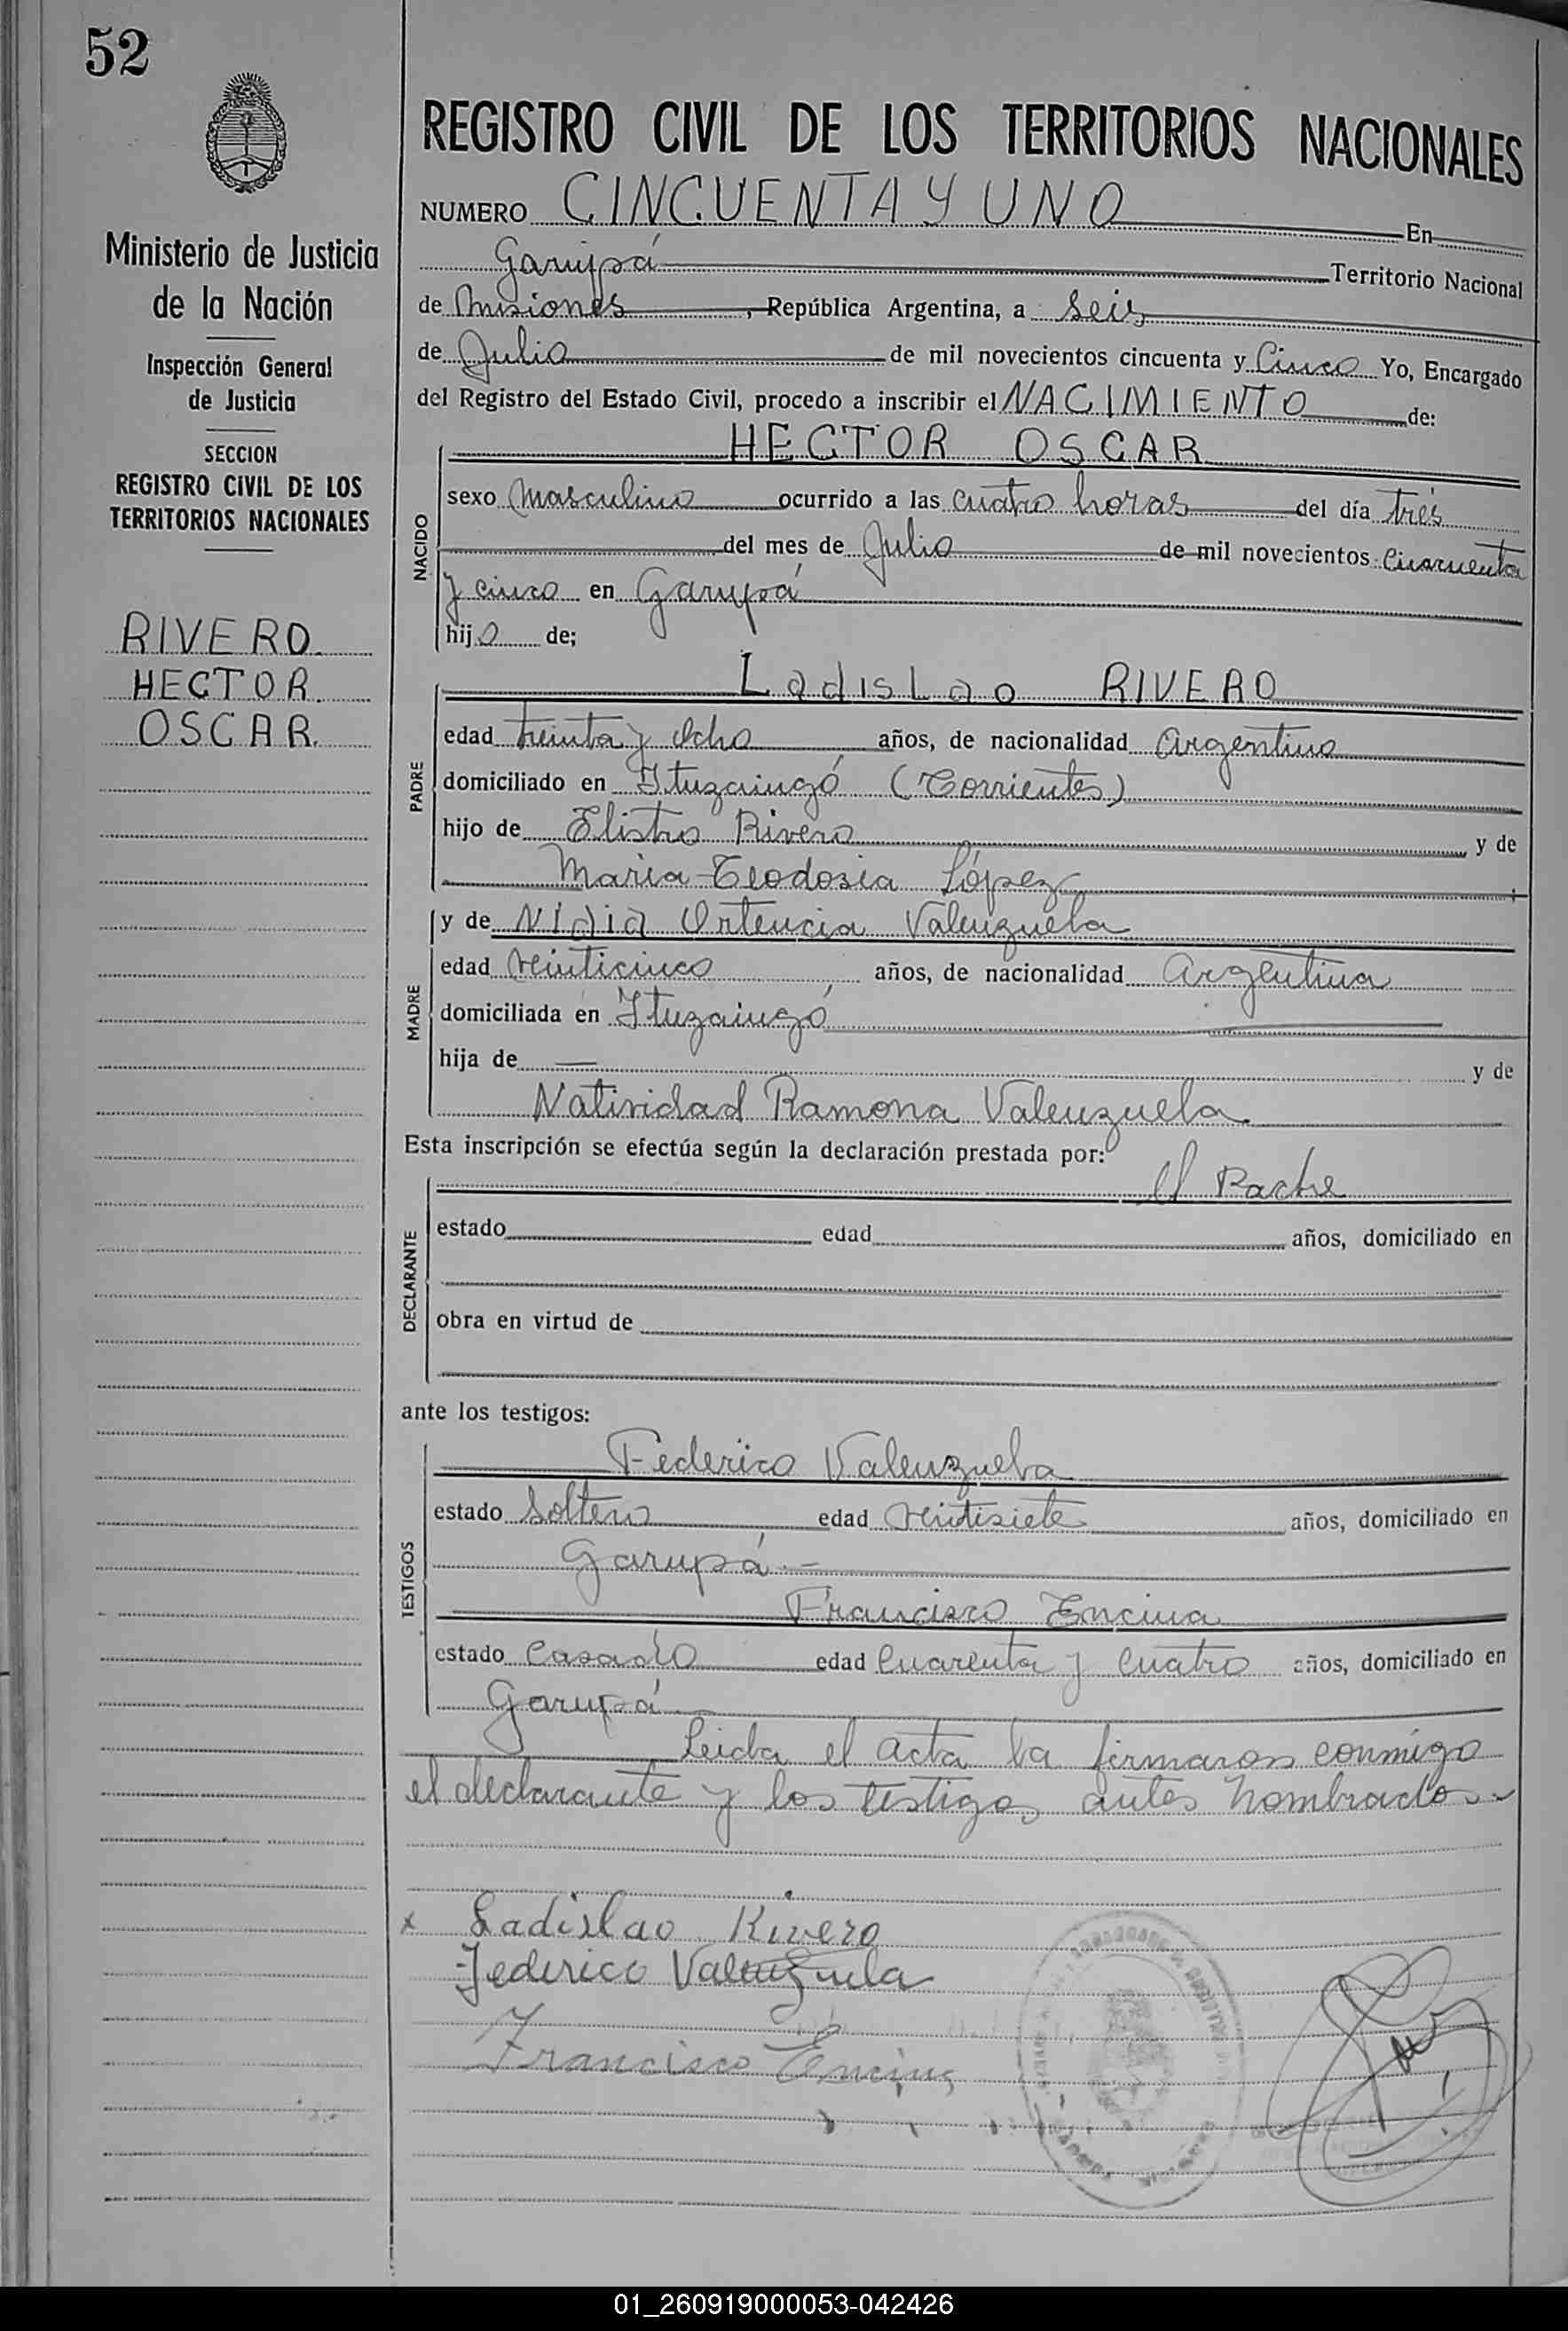 52
REGISTRO CIVIL DE LOS TERRITORIOS NACIONALES
Ministerio de Justicia
de la Nación
Inspección General
de Justicia
SECCION
REGISTRO CIVIL DE LOS
TERRITORIOS NACIONALES
RIVERO
HECTOR
OSCAR.
NUMERO CINCUENTA Y UNO En
Garupá Territorio Nacional
de Misiones, República Argentina, a Seis
de Julio de mil novecientos cincuenta y Cinco Yo, Encargado
del Registro del Estado Civil, procedo a inscribir el NACIMIENTO de:
NACIDO
HECTOR OSCAR
sexo Masculino ocurrido a las cuatro horas del día trés
del mes de Julio de mil novecientos Cuarenta
y cinco en Garupá
hijo de;
PADRE
Ladislao RIVERO
edad treinta y Ocho años, de nacionalidad Argentino
domiciliado en Ituzaingó (Corrientes)
hijo de Elistro Rivero y de
Maria Teodosia López;
MADRE
y de Nidia Ortencia Valenzuela
edad Veinticinco años, de nacionalidad Argentina
domiciliada en Ituzaingó
hija de — y de
Natividad Ramona Valenzuela
Esta inscripción se efectúa según la declaración prestada por:
DECLARANTE
el Padre
estado edad años, domiciliado en
obra en virtud de
ante los testigos:
TESTIGOS
Federico Valenzuela
estado Soltero edad Veintisiete años, domiciliado en
Garupá.—
Francisco Encina
estado Casado edad Cuarenta y Cuatro años, domiciliado en
Garupá
Leida el acta la firmaron conmigo
el declarante y los testigos antes nombrados.
x Ladislao Rivero
Federico Valenzuela
Francisco Encina
01_260919000053-042426